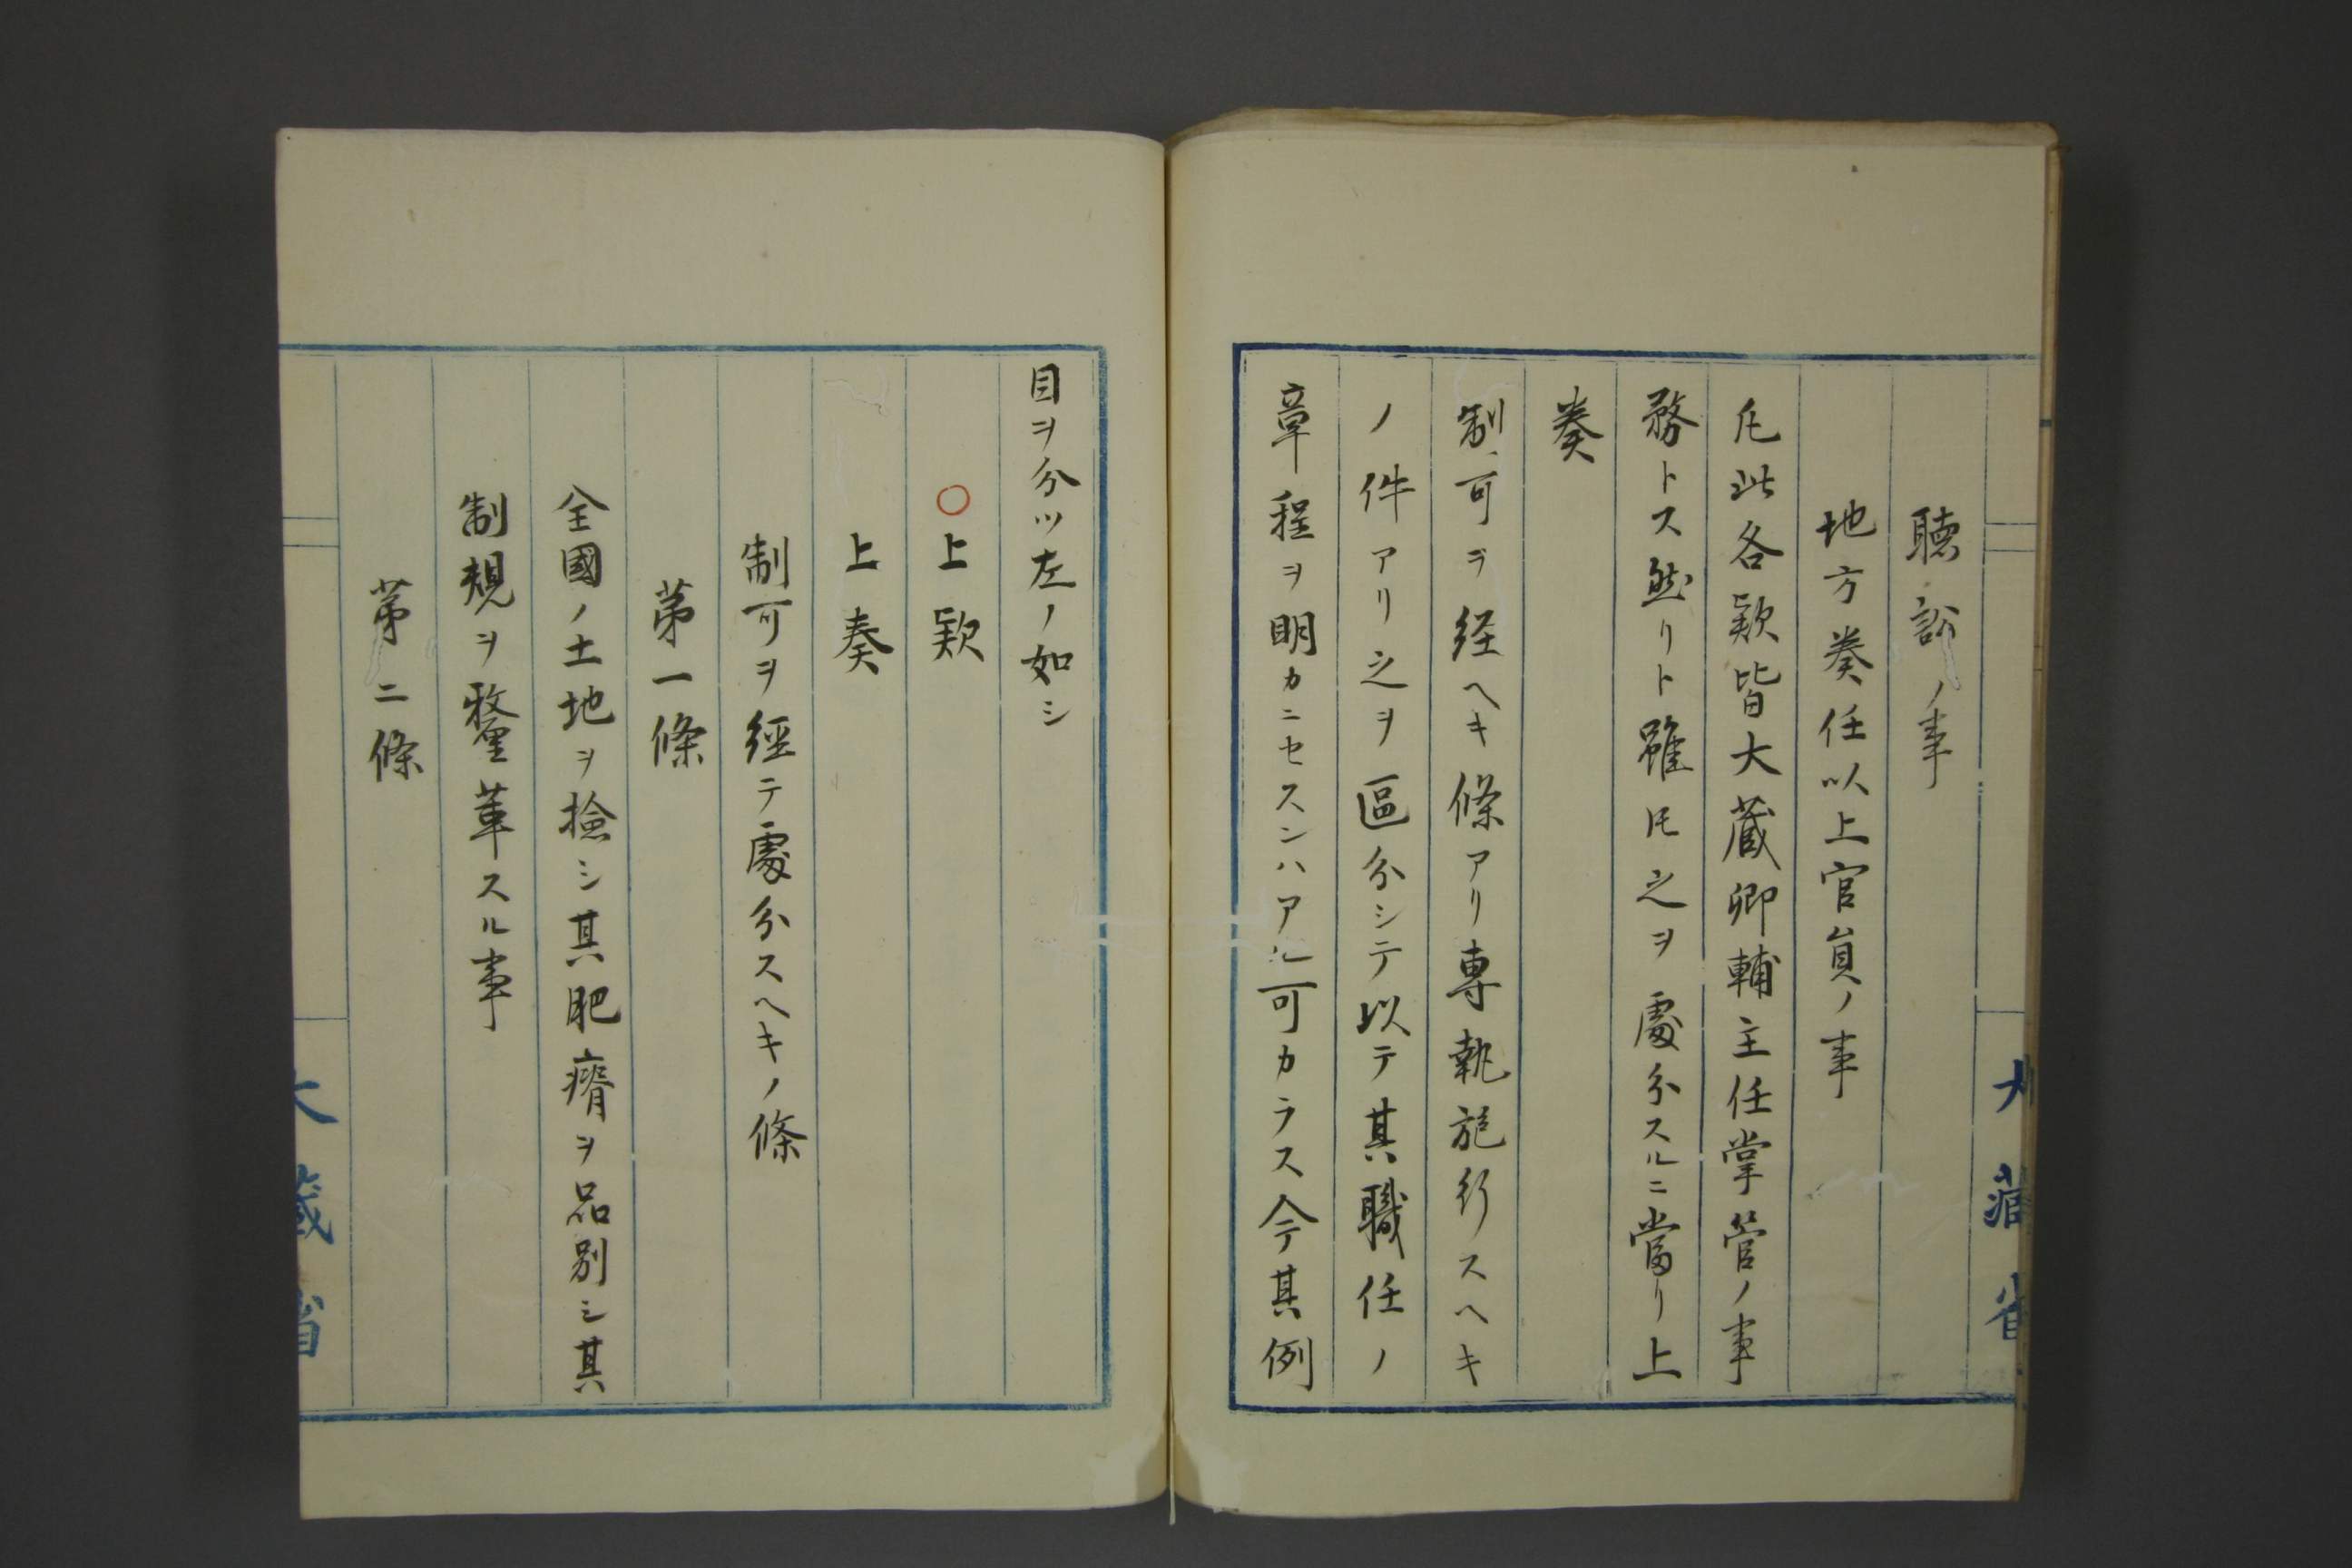 聴訟ノ事
地方奏任以上官員ノ事
凡此各欵皆大蔵卿輔主任掌管ノ事
務トス然リト雖𪜈之ヲ處分スルニ當リ上
奏
制可ヲ経ヘキ條アリ専執施行スヘキ
ノ件アリ之ヲ區分シテ以テ其職任ノ
章程ヲ明カニセスンハアル可カラス今其例
目ヲ分ツ左ノ如シ
〇上欵
上奏
制可ヲ經テ處分スヘキノ條
第一條
全國ノ土地ヲ撿シ其肥瘠ヲ品別シ其
制規ヲ釐革スル事
第二條
大藏省
大蔵省